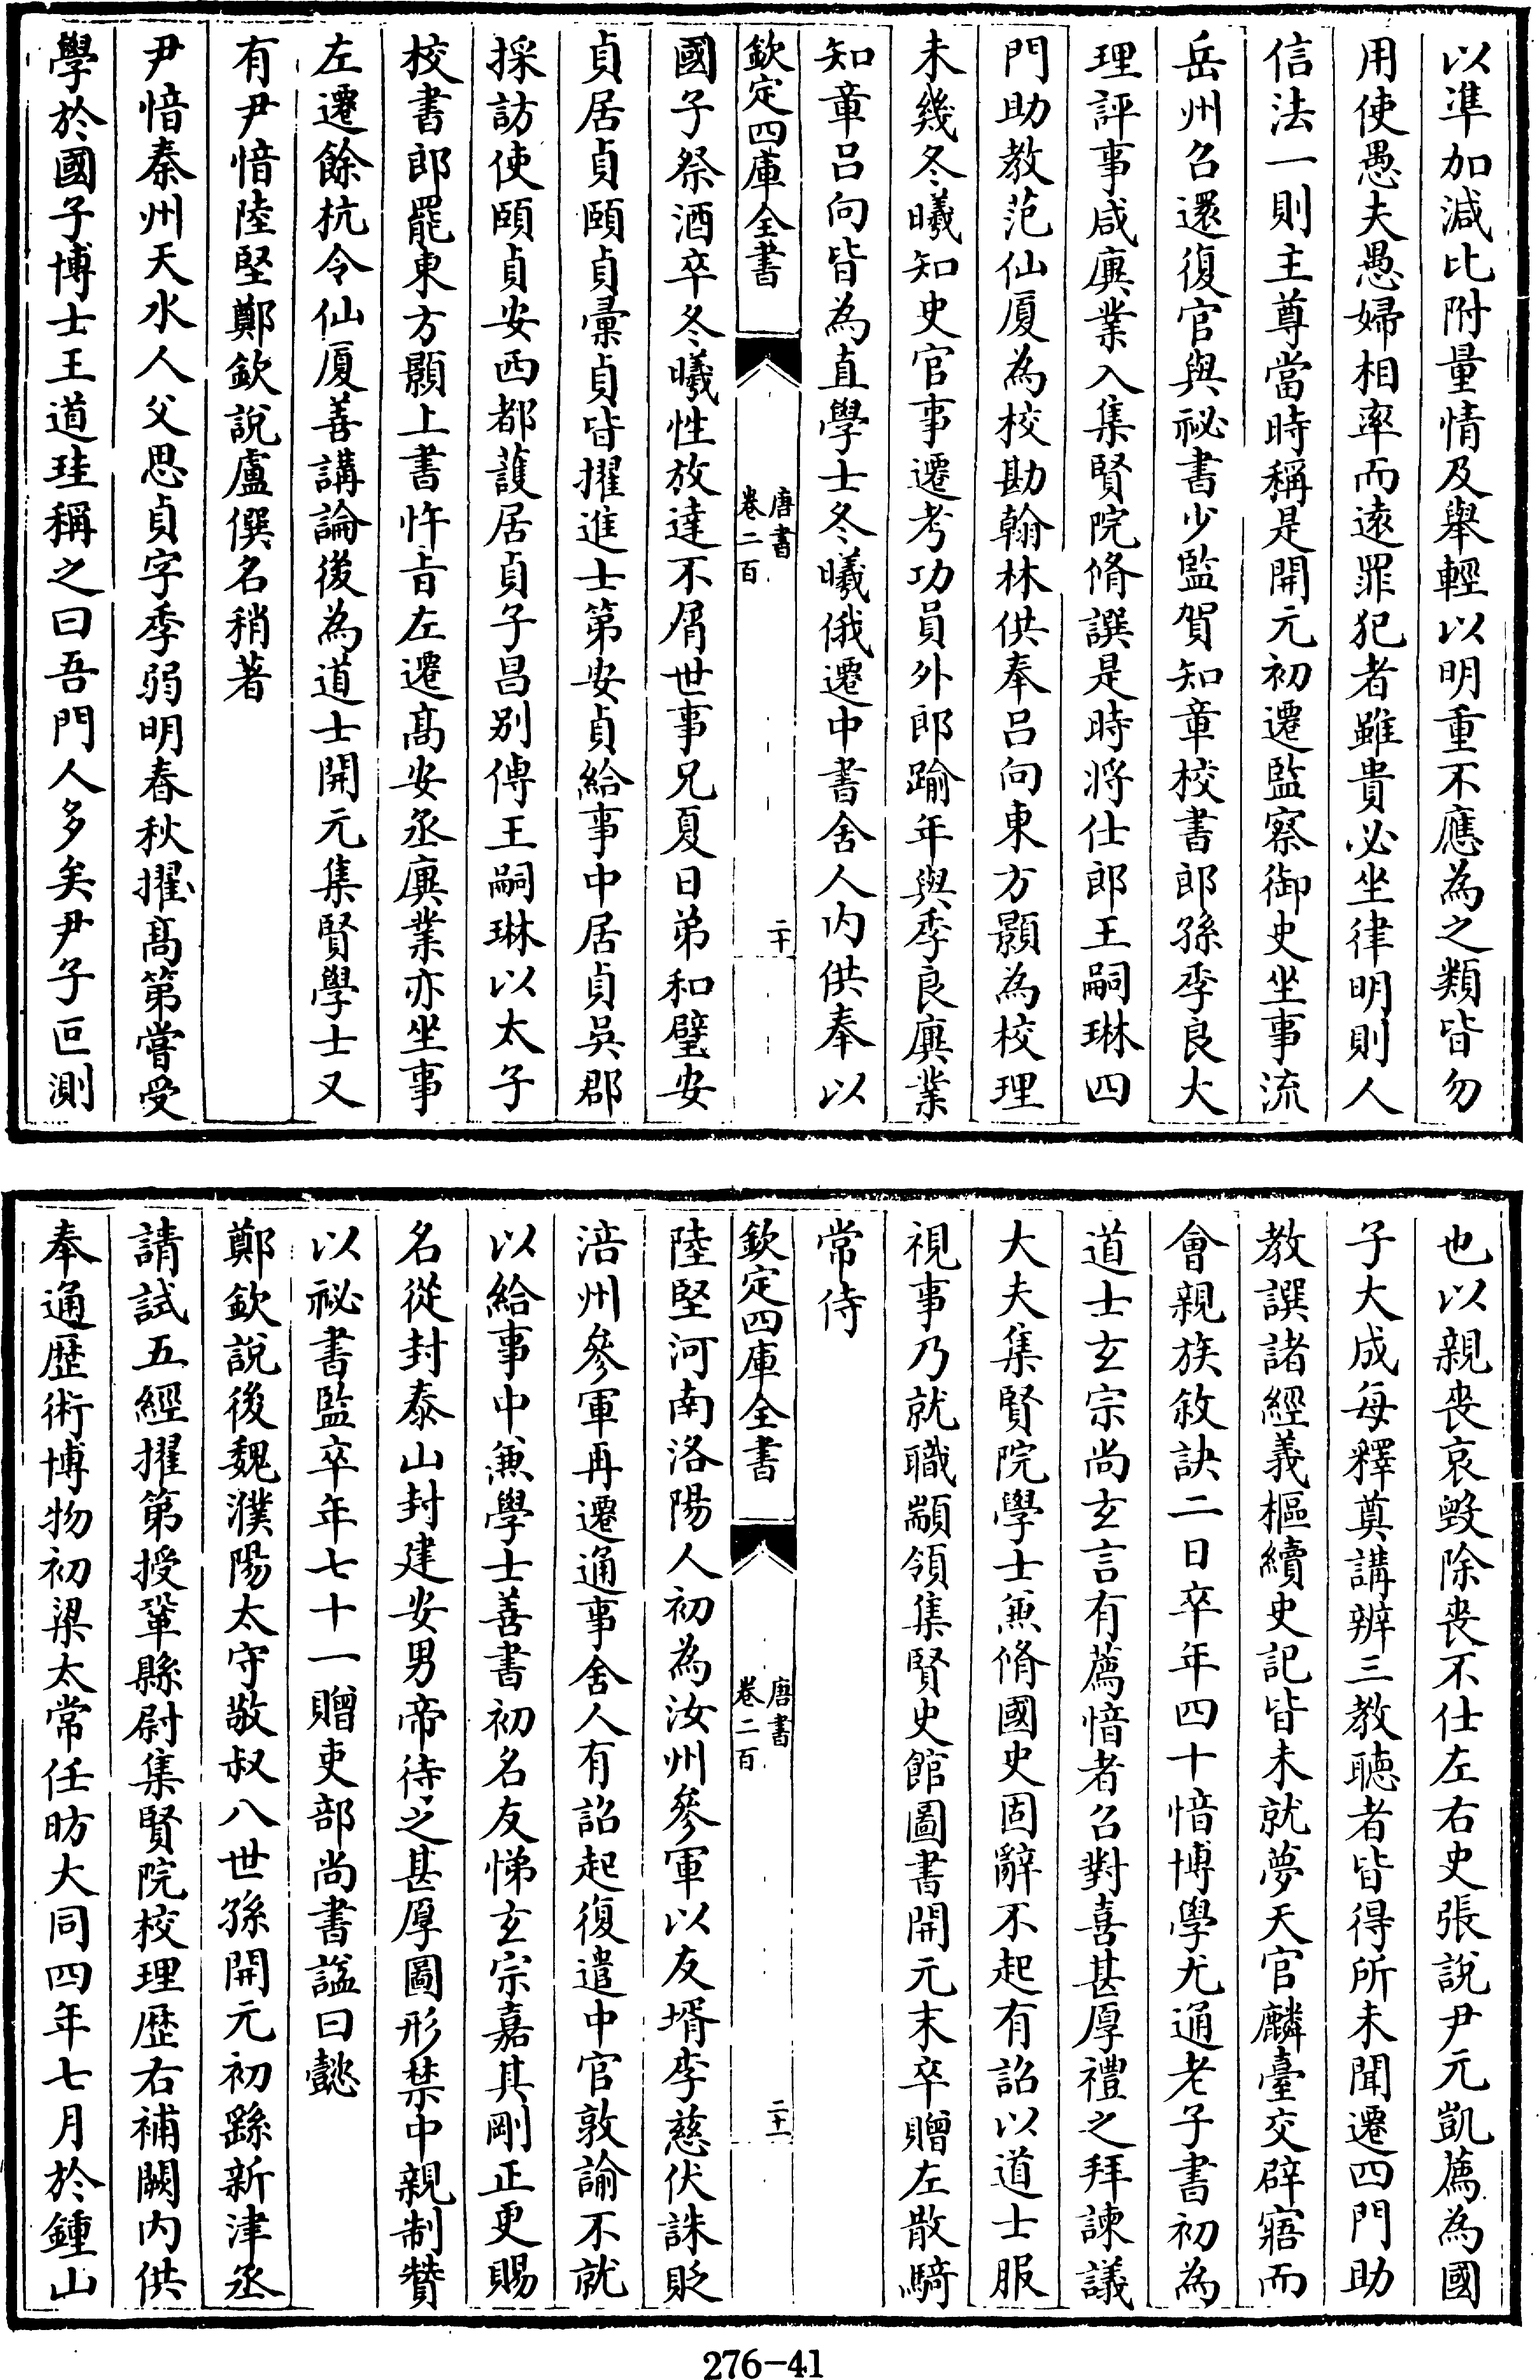 以準加減比附量情及舉輕以明重不應為之類皆勿
用使愚夫愚婦相率而遠罪犯者雖貴必坐律明則人
信法一則主尊當時稱是開元初遷監察御史坐事流
岳州召還復官與祕書少監賀知章校書郎孫季良大
理評事咸廙業入集賢院脩譔是時將仕郎王嗣琳四
門助教范仙厦為校勘翰林供奉吕向東方顥為校理
未幾冬曦知史官事遷考功員外郎踰年與季良廙業
知章吕向皆為直學士冬曦俄遷中書舍人内供奉以
欽定四庫全書
唐書
卷二百
二十
國子祭酒卒冬曦性放達不屑世事兄夏日弟和璧安
貞居貞頤貞彚貞皆擢進士第安貞給事中居貞吳郡
採訪使頤貞安西都護居貞子昌別傳王嗣琳以太子
校書郎罷東方顥上書忤㫖左遷髙安丞廙業亦坐事
左遷餘杭令仙厦善講論後為道士開元集賢學士又
有尹愔陸堅鄭欽說盧僎名稍著
尹愔秦州天水人父思貞字季弱明春秋擢髙第嘗受
學於國子博士王道珪稱之曰吾門人多矣尹子叵測
也以親喪哀毀除喪不仕左右史張說尹元凱薦為國
子大成每釋奠講辨三教聽者皆得所未聞遷四門助
教譔諸經義樞續史記皆未就夢天官麟臺交辟寤而
會親族敘訣二日卒年四十愔博學尤通老子書初為
道士玄宗尚玄言有薦愔者召對喜甚厚禮之拜諫議
大夫集賢院學士兼脩國史固辭不起有詔以道士服
視事乃就職顓領集賢史館圖書開元末卒贈左散騎
常侍
欽定四庫全書
唐書
卷二百
二十一
陸堅河南洛陽人初為汝州參軍以友壻李慈伏誅貶
涪州參軍再遷通事舍人有詔起復遣中官敦諭不就
以給事中兼學士善書初名友悌玄宗嘉其剛正更賜
名從封泰山封建安男帝待之甚厚圖形禁中親制贊
以祕書監卒年七十一贈吏部尚書諡曰懿
鄭欽說後魏濮陽太守敬叔八世孫開元初繇新津丞
請試五經擢第授鞏縣尉集賢院校理歴右補闕内供
奉通歴術博物初梁太常任昉大同四年七月於鍾山
276-41